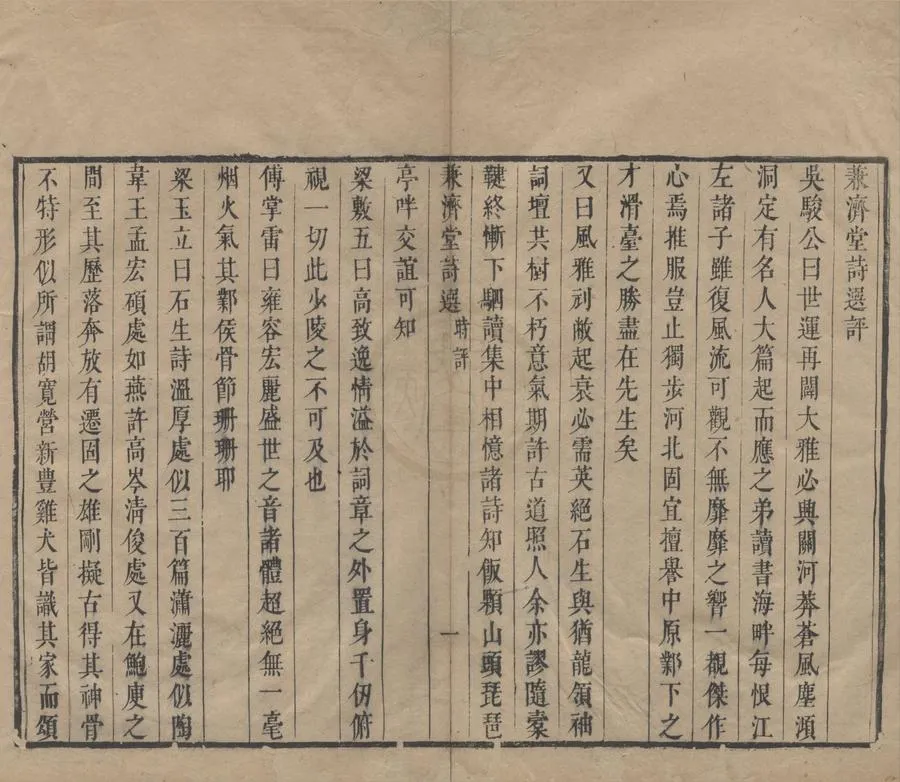 兼濟堂詩選評
吳駿公曰世運再闢大雅必興關河莽蒼風塵澒
洞定有名人大篇起而應之弟讀書海畔每恨江
左諸子雖復風流可觀不無靡靡之響一覩傑作
心焉推服豈止獨步河北固宜擅譽中原鄴下之
才滑臺之勝盡在先生矣
又曰風雅刓敝起衰必需英絕石生與猶龍領袖
詞壇共樹不朽意氣期許古道照人余亦謬隨櫜
鞬終慚下駟讀集中相憶諸詩知飯顆山頭琵琶
兼濟堂詩選 時評 一
亭畔交誼可知
梁敷五曰高致逸情溢於詞章之外置身千仞俯
視一切此少陵之不可及也
傅掌雷曰雍容宏麗盛世之音諸體超絕無一毫
烟火氣其鄴侯骨節珊珊耶
梁玉立曰石生詩溫厚處似三百篇瀟灑處似陶
韋王孟宏碩處如燕許高岑清俊處又在鮑庾之
間至其歷落奔放有遷固之雄剛擬古得其神骨
不特形似所謂胡寬營新豐雞犬皆識其家而頌